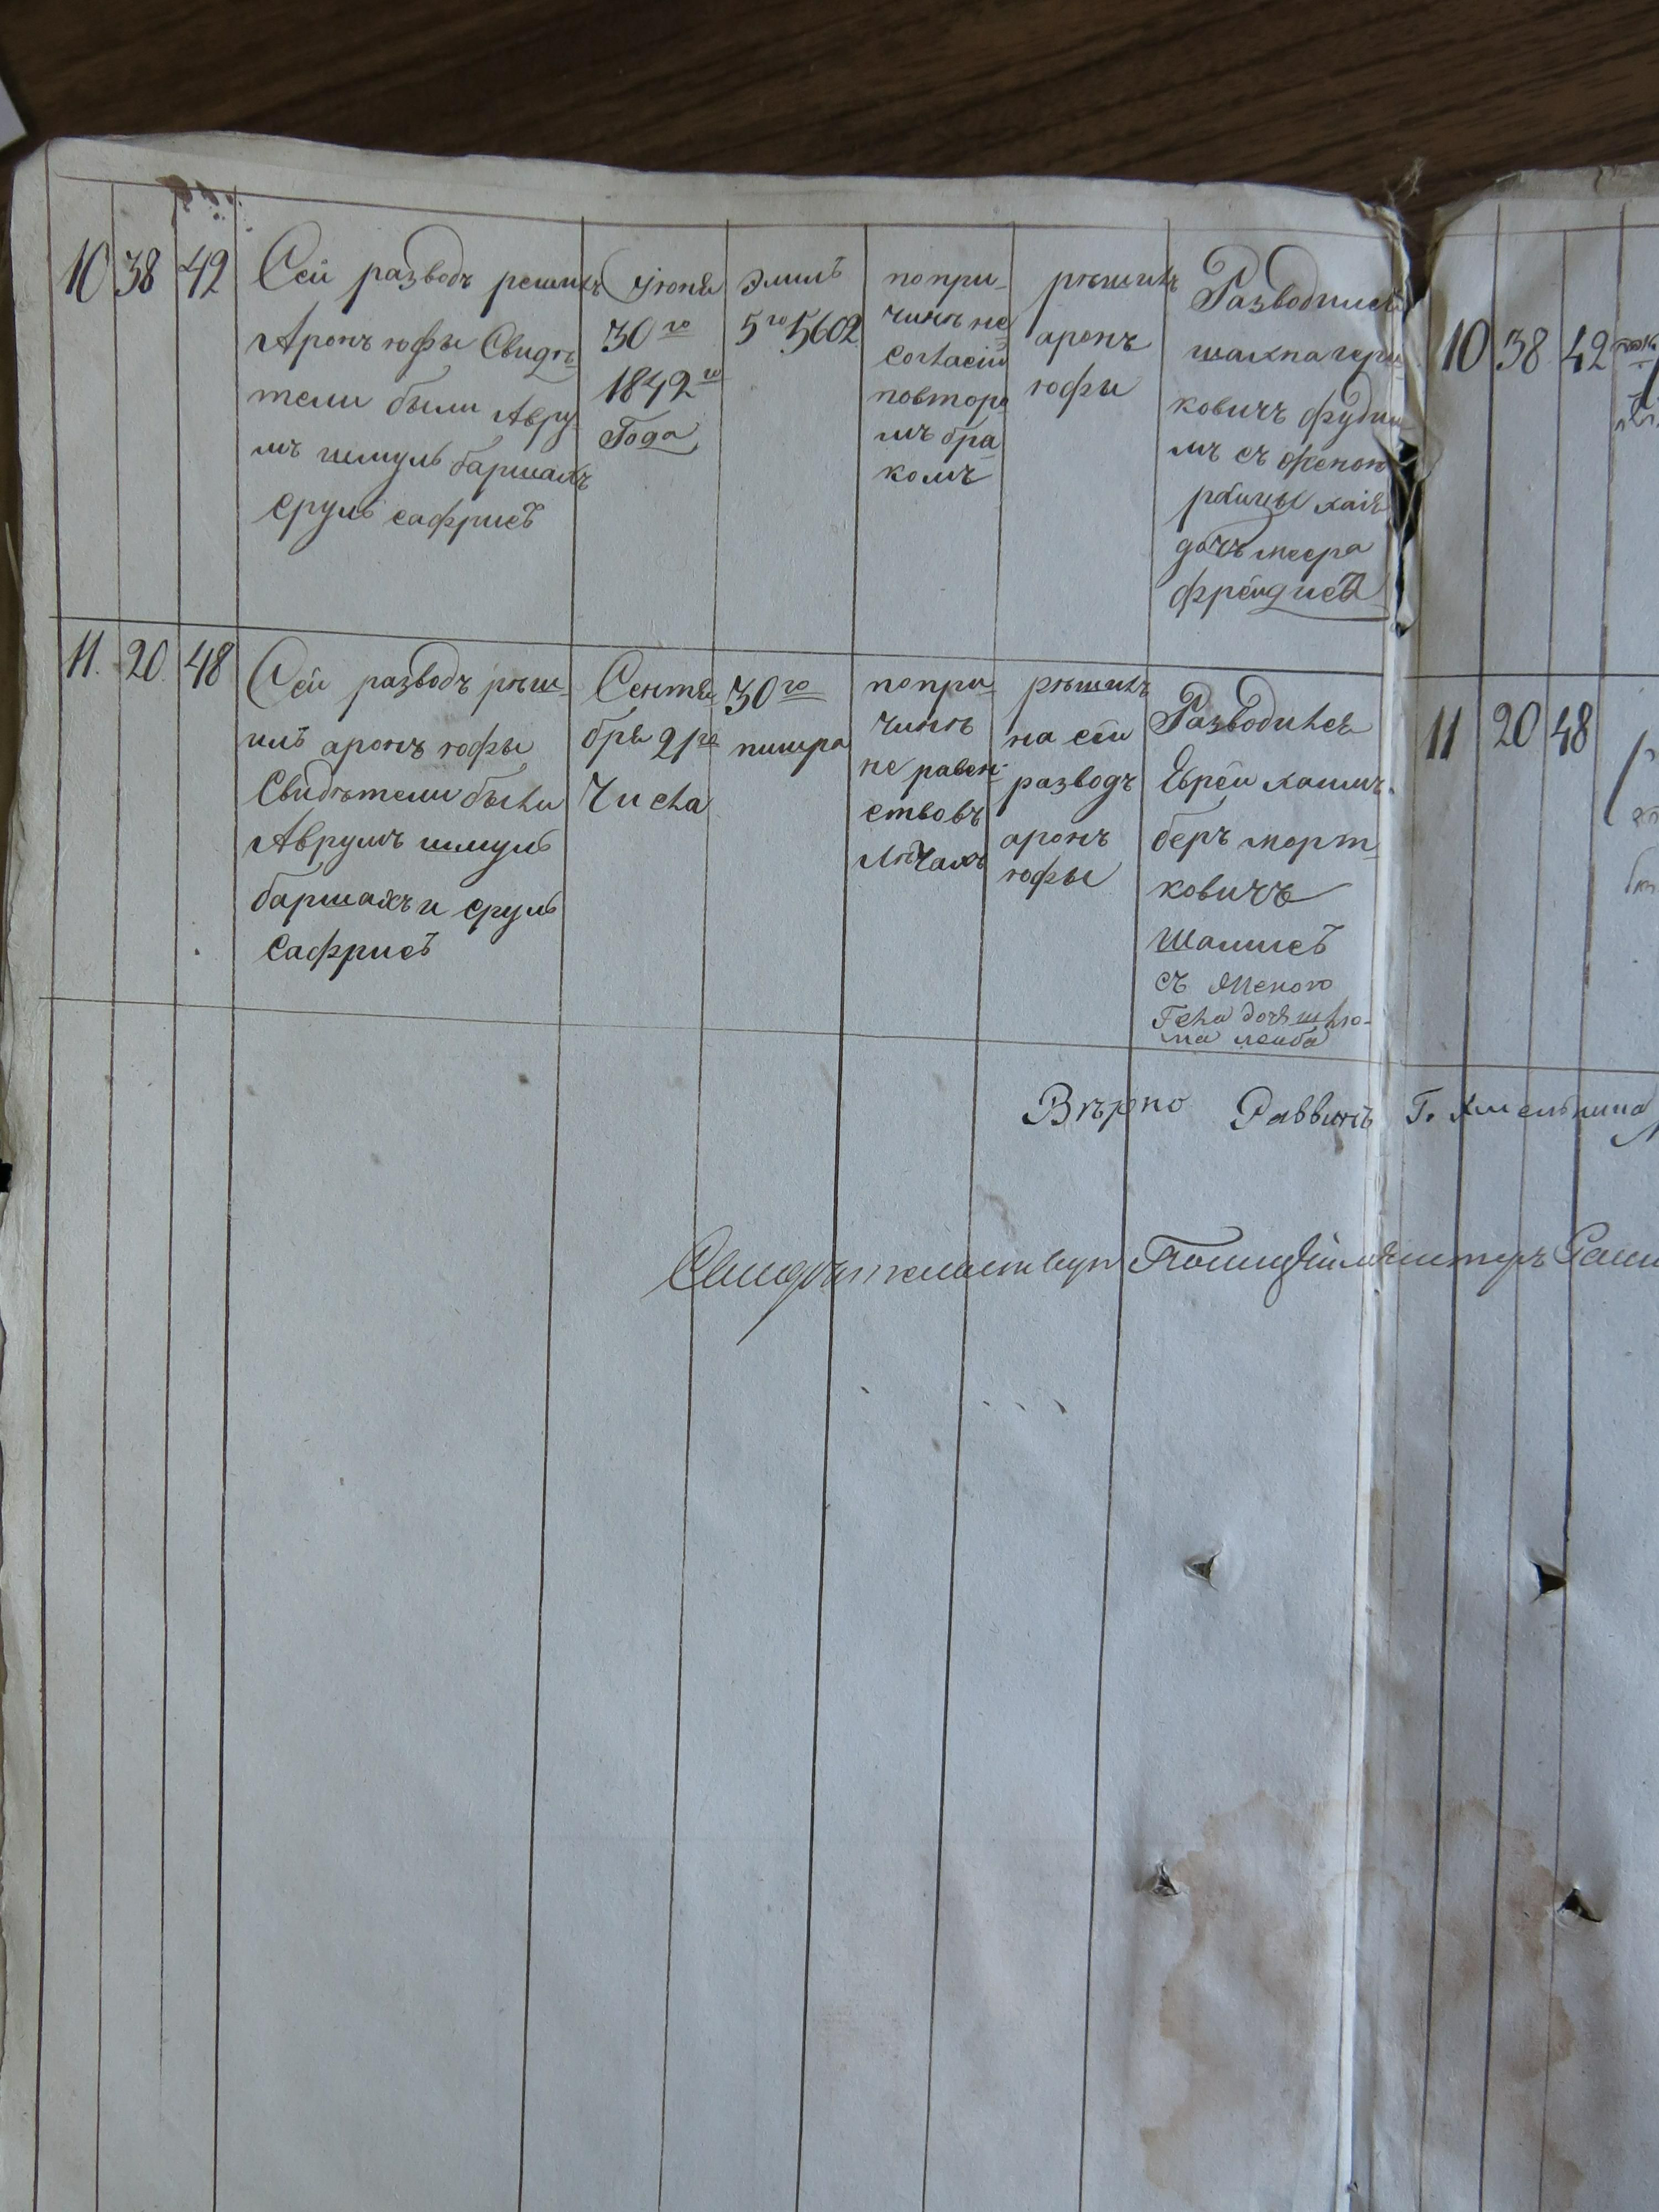 10 38 42
Сей разводъ решилъ
Аронъ юфы Свидѣ-
тели были Авру-
мъ шмуль баршахъ
сруль сафрисъ
Іюня
30го
1842го
Года
Элиль
5го 5602
по при-
чинѣ не
согласія
повторо
мъ бра
комъ
рѣшилъ
аронъ
юфы
Разводился
шахна герш
ковичъ
мъ съ женою
хаія
дочь меера
11. 20 48
Сей разводъ рѣш-
илъ аронъ юфы
Свидѣтели были
Аврумъ шмуль
баршахъ и сруль
Сафрисъ
Сентя
бря 21го
Числа
30го
тишра
по при-
чинѣ
не равен-
ствовъ
лѣтахъ
рѣшилъ
на сей
разводъ
аронъ
юфы
Разводился
Еврей хаимъ
беръ морт-
ковичъ
Шаписъ
съ Женою
дочь шлю-
ма лейба
10 38 42
11 20 48
Вѣрно Раввинъ Г. Хмельника
Свидѣтельствуетъ Полицеймейстеръ